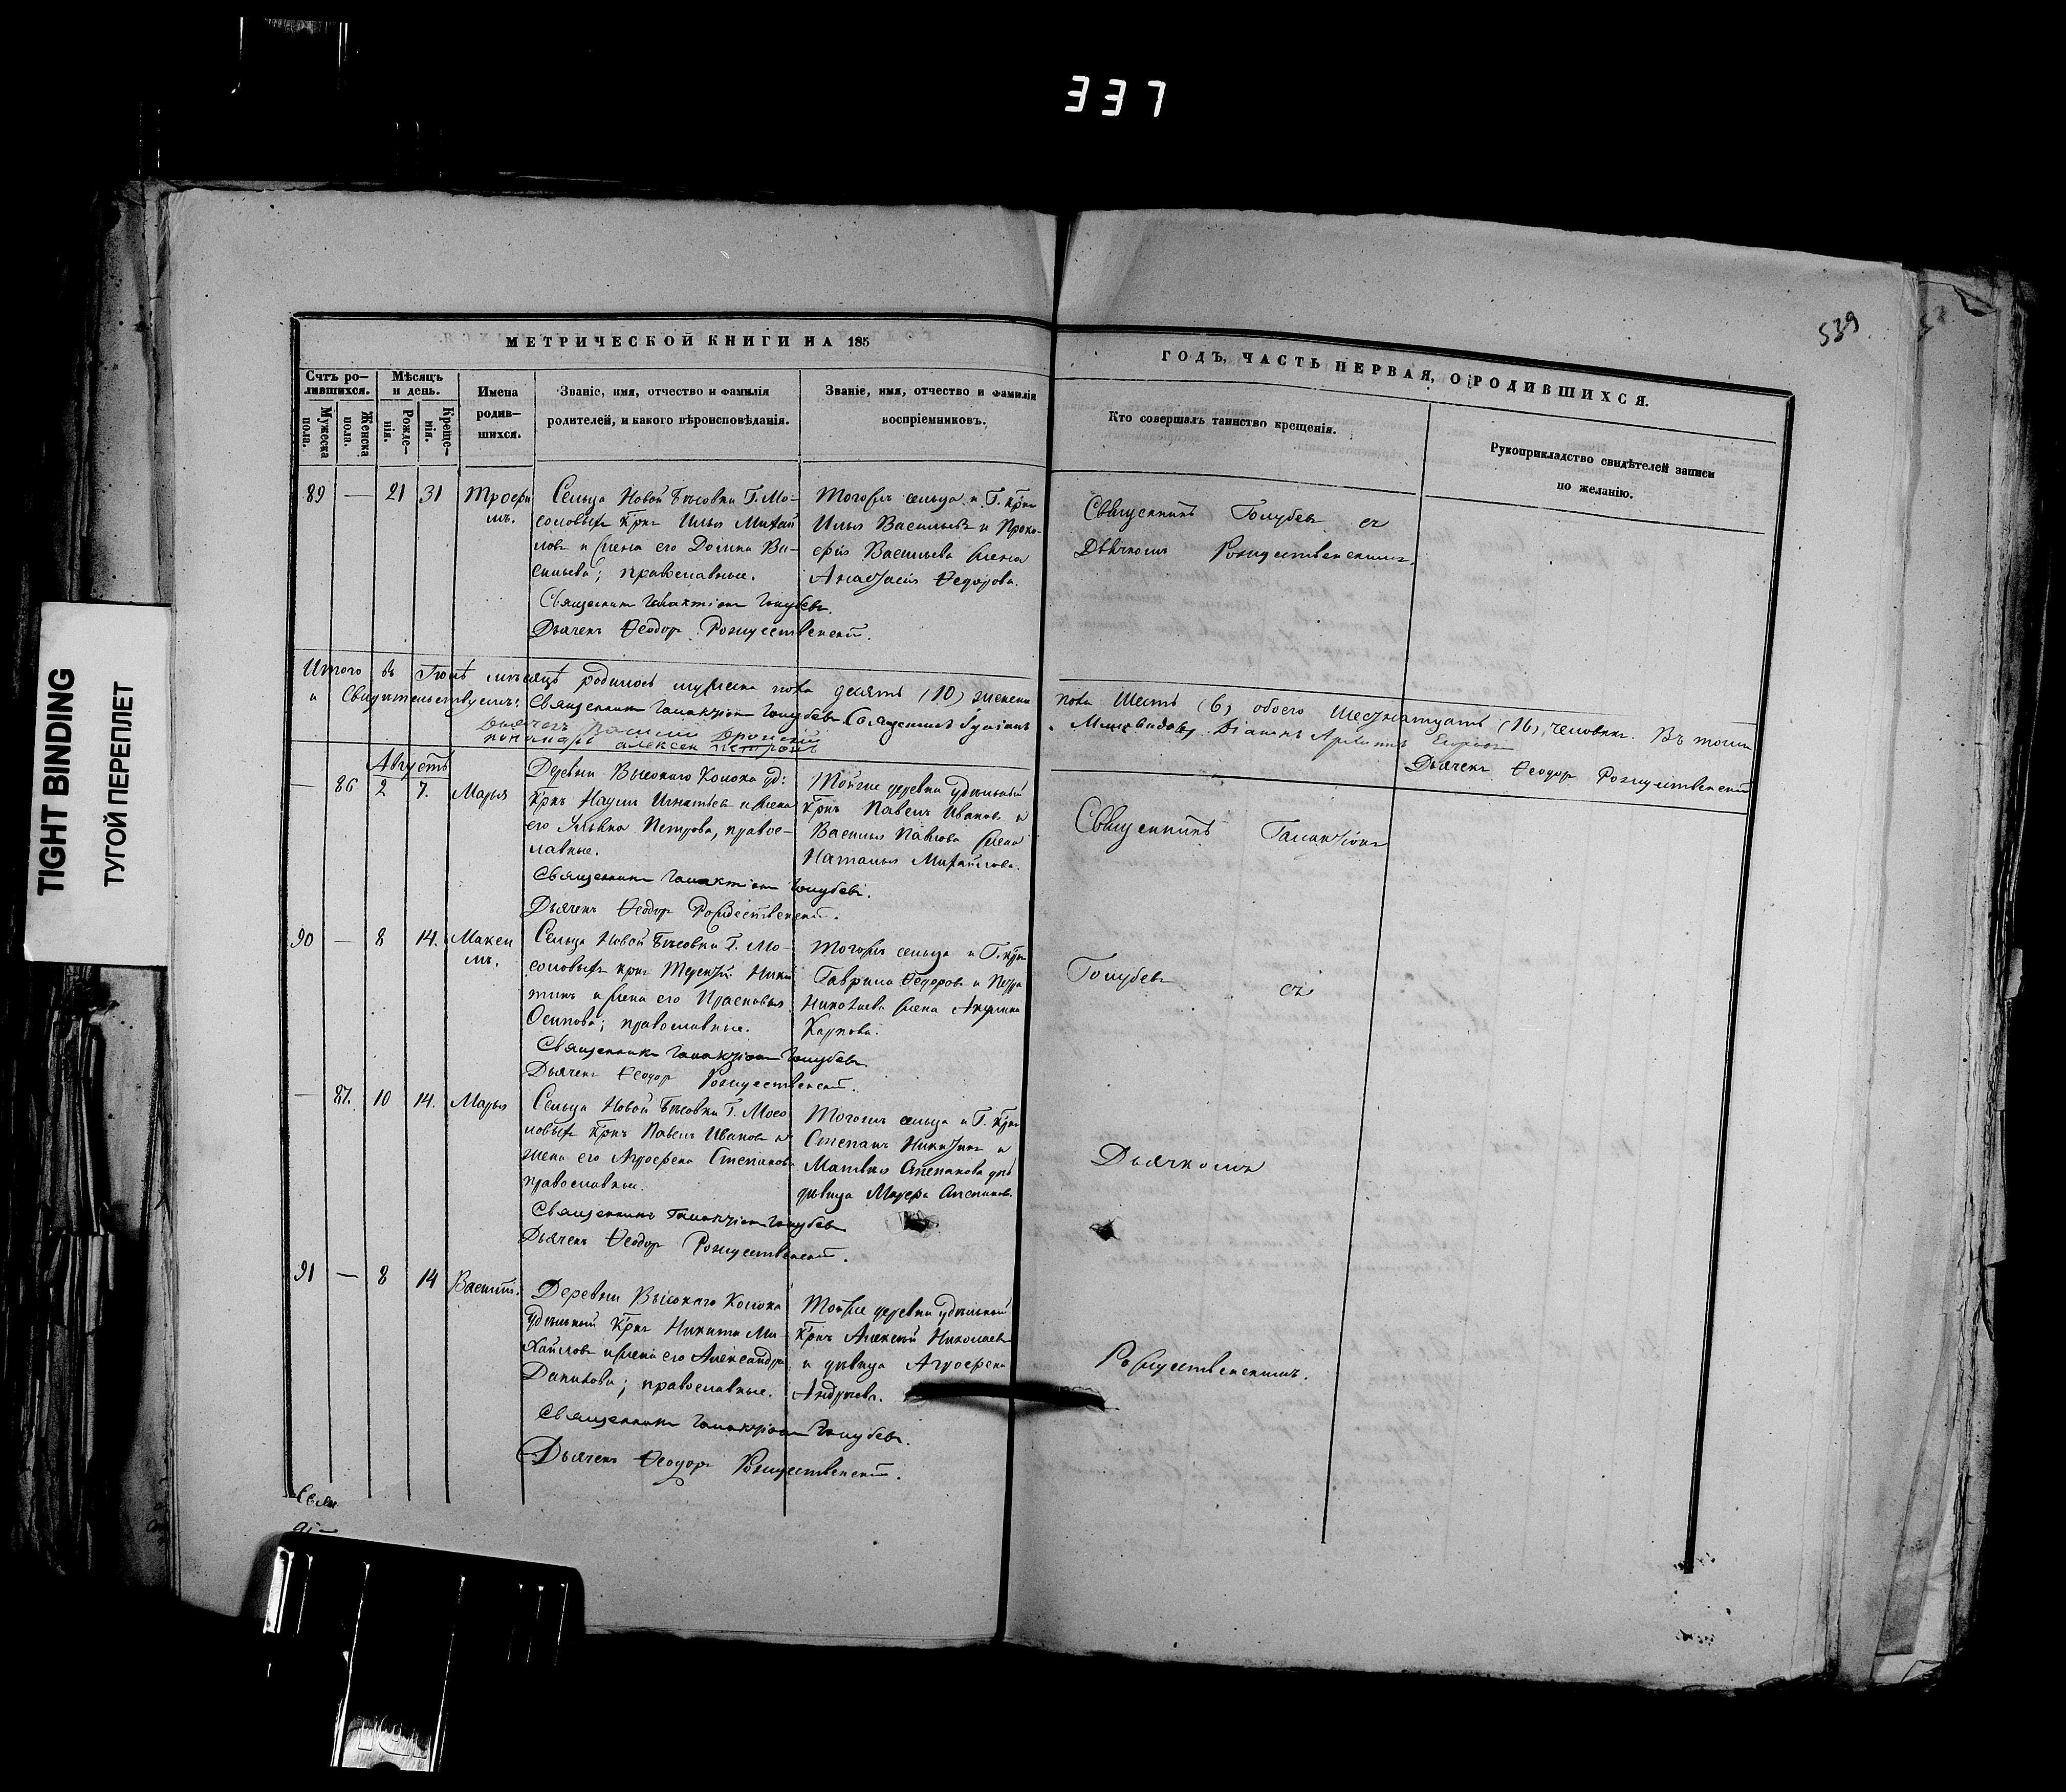 337
539
TIGHT BINDING
ТУГОЙ ПЕРЕПЛЕТ
МЕТРИЧЕСКОЙ КНИГИ НА 185
ГОДЪ, ЧАСТЬ ПЕРВАЯ, О РОДИВШИХСЯ.
Счтъ ро-
лившихся.
Мужеска пола.
Женска пола.
Мѣсяцъ
и день.
Рожде-
нія.
Креще-
нія.
Имена
родив-
шихся.
Званіе, имя, отчество и фамилія
родителей, и какого вѣроисповѣданія.
Званіе, имя, отчество и фамилія
воспріемниковъ.
Кто совершалъ таинство крещенія.
Рукоприкладство свидѣтелей записи
по желанію.
89 — 21 31 Трофи
мъ.
Сельца Новой Г. Мо-
соловыхъ крнъ Илья Михай
ловъ и жена его Домна Ва-
сильева; православные.
Священникъ Галактіонъ Голубевъ.
Дьячекъ Ѳеодоръ Рождественскій.
Тогожъ сельца и Г. крнъ
Илья Васильевъ и Проко-
фія Васильева жена
Анастасія Ѳедорова.
Священникъ Голубевъ съ
Дьячкомъ Рождественскимъ.
Итого въ Іюлѣ мѣсяцѣ родилось мужеска пола десять (10) женска
пола Шесть (6) обоего Шестнатцать (16), человѣкъ. Въ томъ
и Свидѣтельствуемъ: Священникъ Галактіонъ Голубевъ. Священникъ
Дьячекъ Василій
пономарь Алексѣй Петровъ
Діаконъ
Дьячекъ Ѳеодоръ Рождественскій
Августъ
— 86 2 7. Марья
Деревни Высокаго Колока уд:
крнъ Наумъ Игнатьевъ и жена
его Петрова, право-
славные.
Священникъ Галактіонъ Голубевъ.
Дьячекъ Ѳеодоръ Рождественскій.
Тойже деревни удѣльный
крнъ Павелъ Ивановъ и
Василья Павлова жена
Наталья Михайлова.
Священникъ Галактіонъ
90 — 8 14. Макси
мъ.
Сельца Новой Г. Мо-
соловыхъ крнъ Терентій Ники
тинъ и жена его Прасковья
Осипова; православные.
Священникъ Галактіонъ Голубевъ.
Дьячекъ Ѳеодоръ Рождественскій.
Тогожъ сельца и Г. крнъ
Гаврила Ѳедоровъ и Петра
Николаева жена Акулина
Карпова.
Голубевъ съ
— 87. 10 14. Марья
Сельца Новой Г. Мосо
ловыхъ крнъ Павелъ Ивановъ и
жена его Агрофена Степанова
православные.
Священникъ Галактіонъ Голубевъ
Дьячекъ Ѳеодоръ Рождественскій.
Тогожъ сельца и Г. крнъ
Степанъ Никитинъ и
Матвѣя Степанова
дѣвица Степанова.
Дьячкомъ
91 — 8 14 Василій.
Деревни Высокаго Колока
Удѣльный крнъ Никита Ми-
хайловъ и жена его Александра
Данилова; православные.
Священникъ Галактіонъ Голубевъ.
Дьячекъ Ѳеодоръ Рождественскій.
Тойже деревни удѣльный
крнъ Алексѣй Николаевъ
и дѣвица Агрофена
Андреева.
Рождественскимъ.